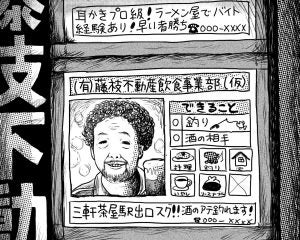 耳かきプロ級！ラーメン屋でバイト
経験あり！早い者勝ち ☎000-XXXX
(有)藤枝不動産飲食事業部(仮)
できること
○釣り
○酒の相手
料理
釣り
三軒茶屋駅出口スグ!!酒のアテ釣れます!
☎000-XXXX
枝不動